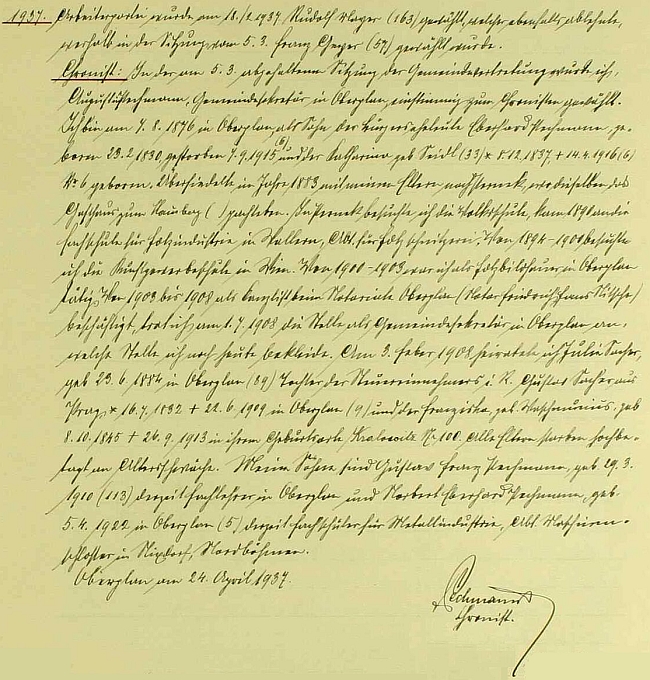 1937. Arbeiterpartei wurde am 18./2.1937, Rudolf Mayer (163) gewählt, welcher ebenfalls ablehnte,
weshalb in der Sitzung vom 5. 3. Franz Geyer (57) gewählt wurde.
Chronist: In der am 5. 3. abgehaltenen Sitzung der Gemeindevertretung wurde ich,
August Pechmann, Gemeindesekretär in Oberplan, einstimmig zum Chronisten gewählt.
Ich bin am 7. 8. 1876 in Oberplan, als Sohn der Bürgerseheleute Eberhard Pechmann, ge-
boren 23.2.1830, gestorben 7.9.1915 (6) und der Katharina, geb. Seidl (33) * 8.12.1837 + 14.4.1916 (6)
No 6 geboren. Übersiedelte im Jahre 1883 mit meinen Eltern nach Pernek, wo dieselben das
Gasthaus zum ( ) pachteten. In Pernek besuchte ich die Volksschule, kam 1890 an die
Fachschule für Holzindustrie in Wallern, Abt. für Holzschnitzerei. Von 1894-1900 besuchte
ich die Kunstgewerbeschule in Wien. Von 1900-1903 war ich als Holzbildhauer in Oberplan
tätig. Von 1903 bis 1908 als Kanzlist beim Notariate Oberplan (Notar Friedrich Franz Nitsche)
beschäftigt, trat ich am 1. 7. 1908 die Stelle als Gemeindesekretär in Oberplan an,
welche Stelle ich noch heute bekleide. Am 3. Feber 1908 heiratete ich Julie Sacher,
geb. 23. 6. 1884 in Oberplan (89) Tochter des Steuereinnehmers i. R. Gustav Sacher aus
Prag, * 16.7.1832 + 22.6.1909 in Oberplan (9) und der Franziska, geb. geb.
8.10.1845 + 26.9.1913 in ihrem Geburtsorte, Kralowitz No 100. Alle Eltern starben hochbe-
tagt an Altersschwäche. Meine Söhne sind Gustav Franz Pechmann, geb. 29. 3.
1910 (113) derzeit Fachlehrer in Oberplan und Norbert Eberhard Pechmann, geb.
5. 4. 1922 in Oberplan (5) derzeit Fachschüler für Metallindustrie, Abt. Maschinen-
schlosser in Nixdorf, Nordböhmen.
Oberplan am 24. April 1937.
Pechmann
Chronist.